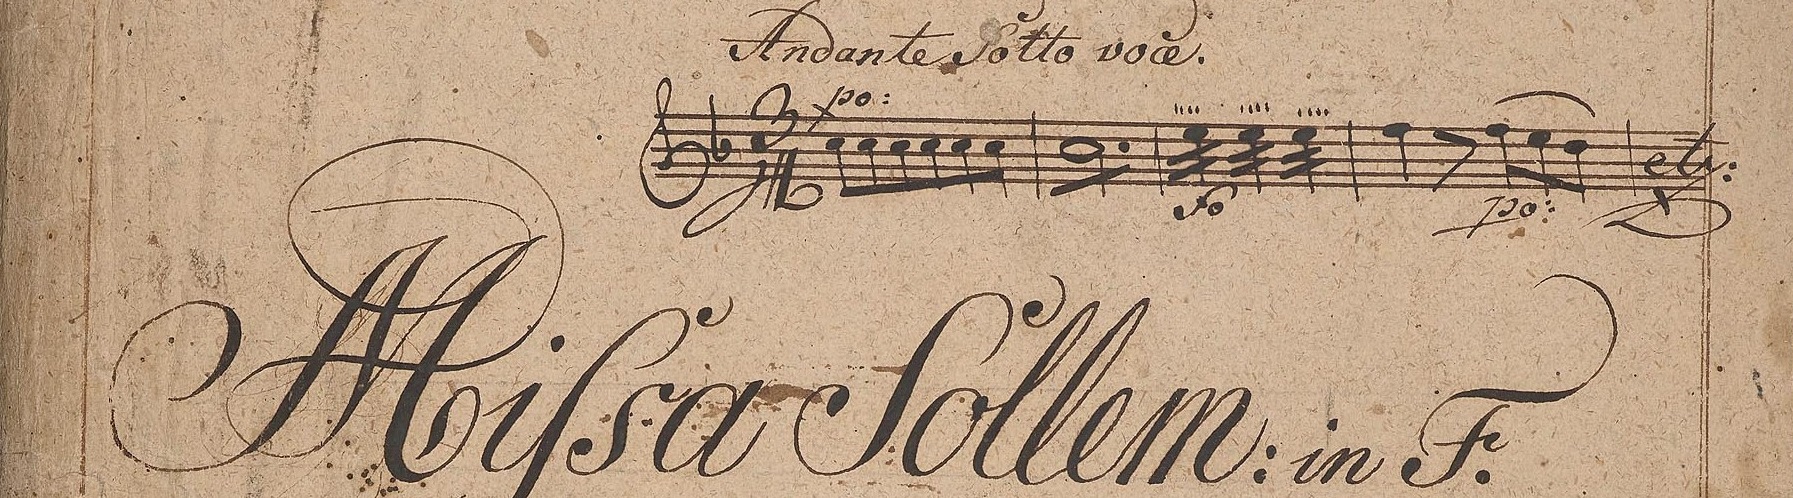 Andante Sotto voce.
po:
etc:
fo
po:
Miſsa Sollem: in F.